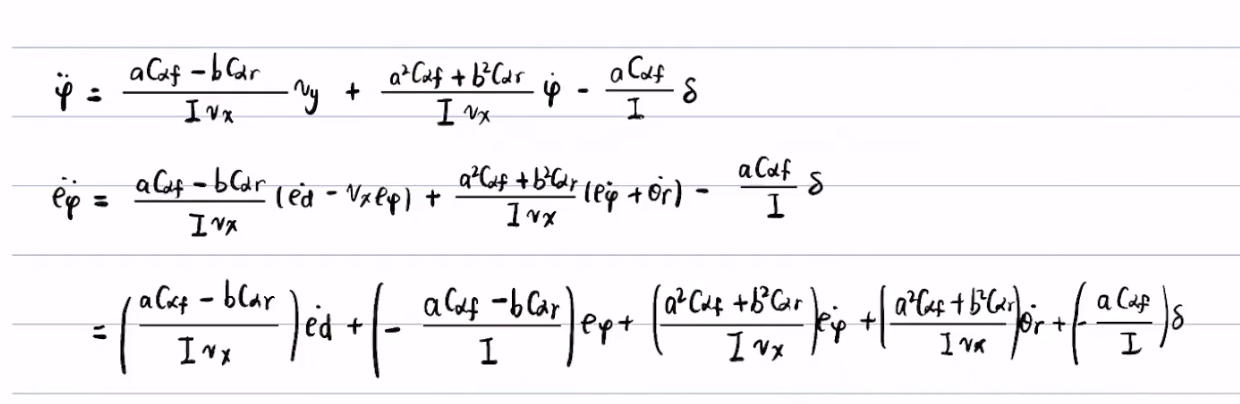 φ̈ = (aCαf - bCαr)/(I vx) vy + (a²Cαf + b²Cαr)/(I vx) φ̇ - (aCαf)/I δ
ëφ = (aCαf - bCαr)/(I vx) (ėd - vx eφ) + (a²Cαf + b²Cαr)/(I vx) (ėφ + θ̇r) - (aCαf)/I δ
= ((aCαf - bCαr)/(I vx)) ėd + (- (aCαf - bCαr)/I) eφ + ((a²Cαf + b²Cαr)/(I vx)) ėφ + ((a²Cαf + b²Cαr)/(I vx)) θ̇r + (- (aCαf)/I) δ